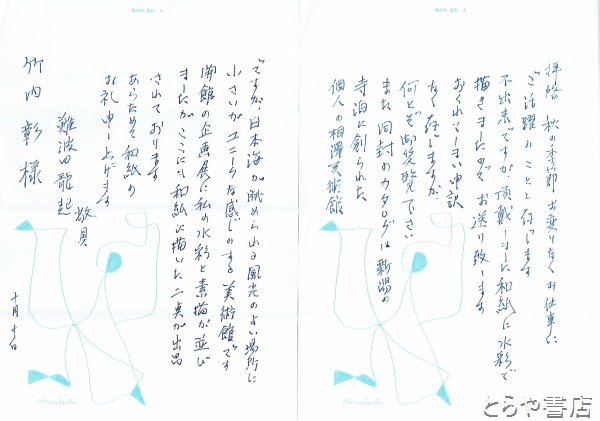 拝啓 秋の季節 お変りなくお仕事に
ご活躍のことと存じます
不出来ですが頂戴しました和紙に水彩で
描きましたので お送り致します
おくれてしまい申訳
なく存じますが
何とぞ御笑覧下さい
また同封のカタログは新潟の
寺泊に創られた
個人の相澤美術館
ですが、日本海が眺められる風光のよい場所に
小さいがユニークな感じのする美術館です
開館の企画展に私の水彩と素描が並び
ましたが ここにも和紙に描いた二点が出品
されております
あらためて和紙の
お礼申し上げます
敬具
難波田龍起
竹内 彰 様
十月十日
Nambata
Nambata
とらや書店